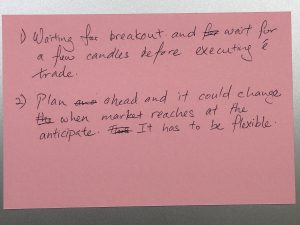 1) Waiting for breakout and for wait for
a few candles before executing &
trade.
2) Plan and ahead and it could change
the when market reaches at the
anticipate. It has to be flexible.